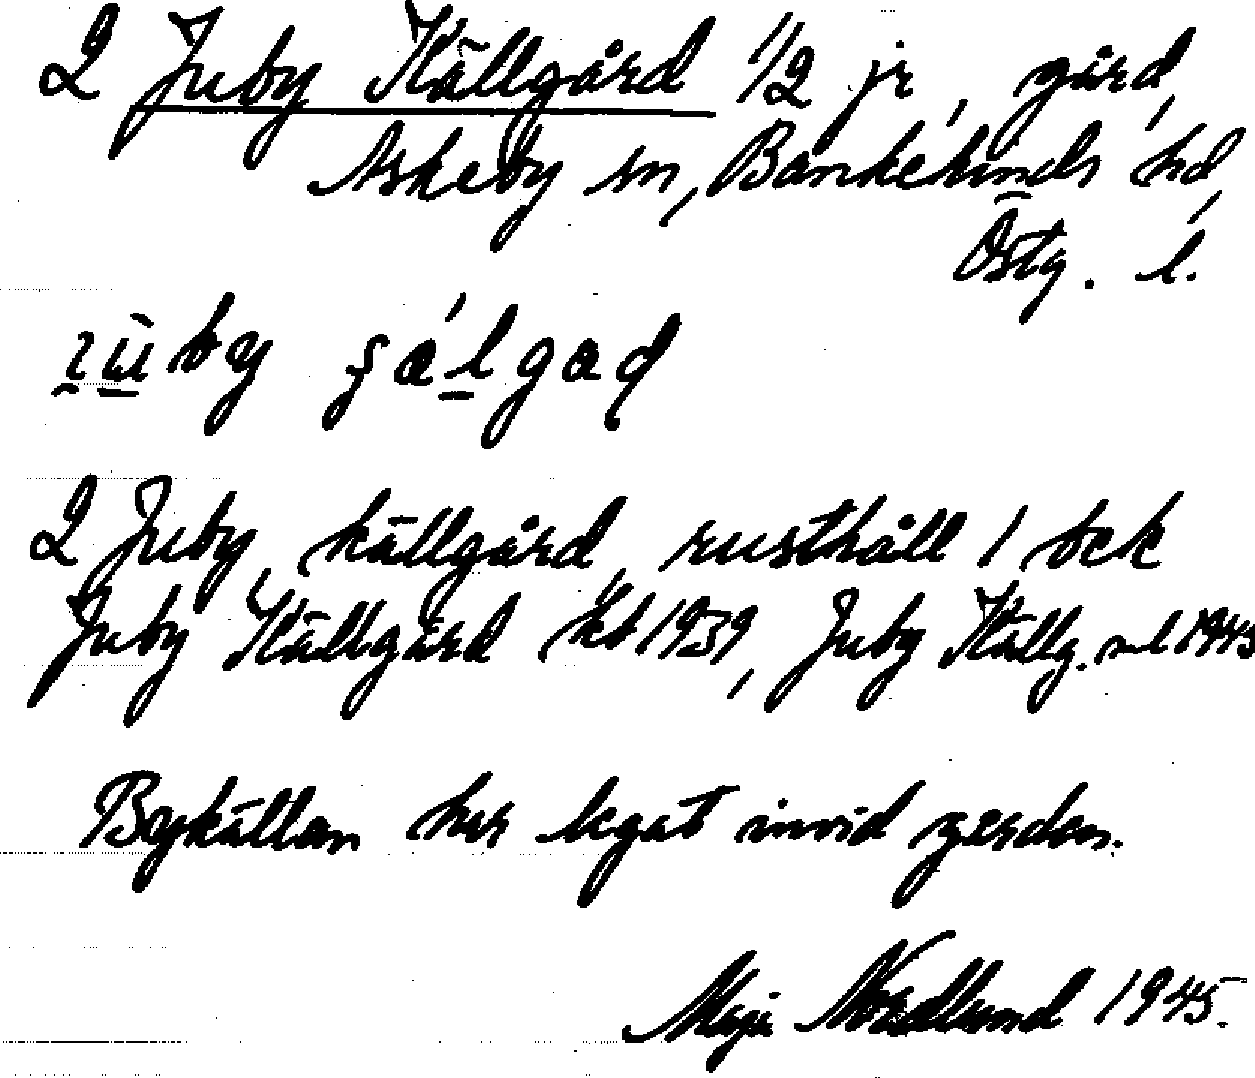 2 Juby Källgård 1/2 jr, gård,
Askeby sn, Bankekinds hd,
Östg. l.
by gad
2 Juby, källgård, rusthåll 1 bek
Juby Källgård kt 1939, Juby Källg. ml 1945
Bykällan har legat invid gården.
Maja Nordlund 1945.